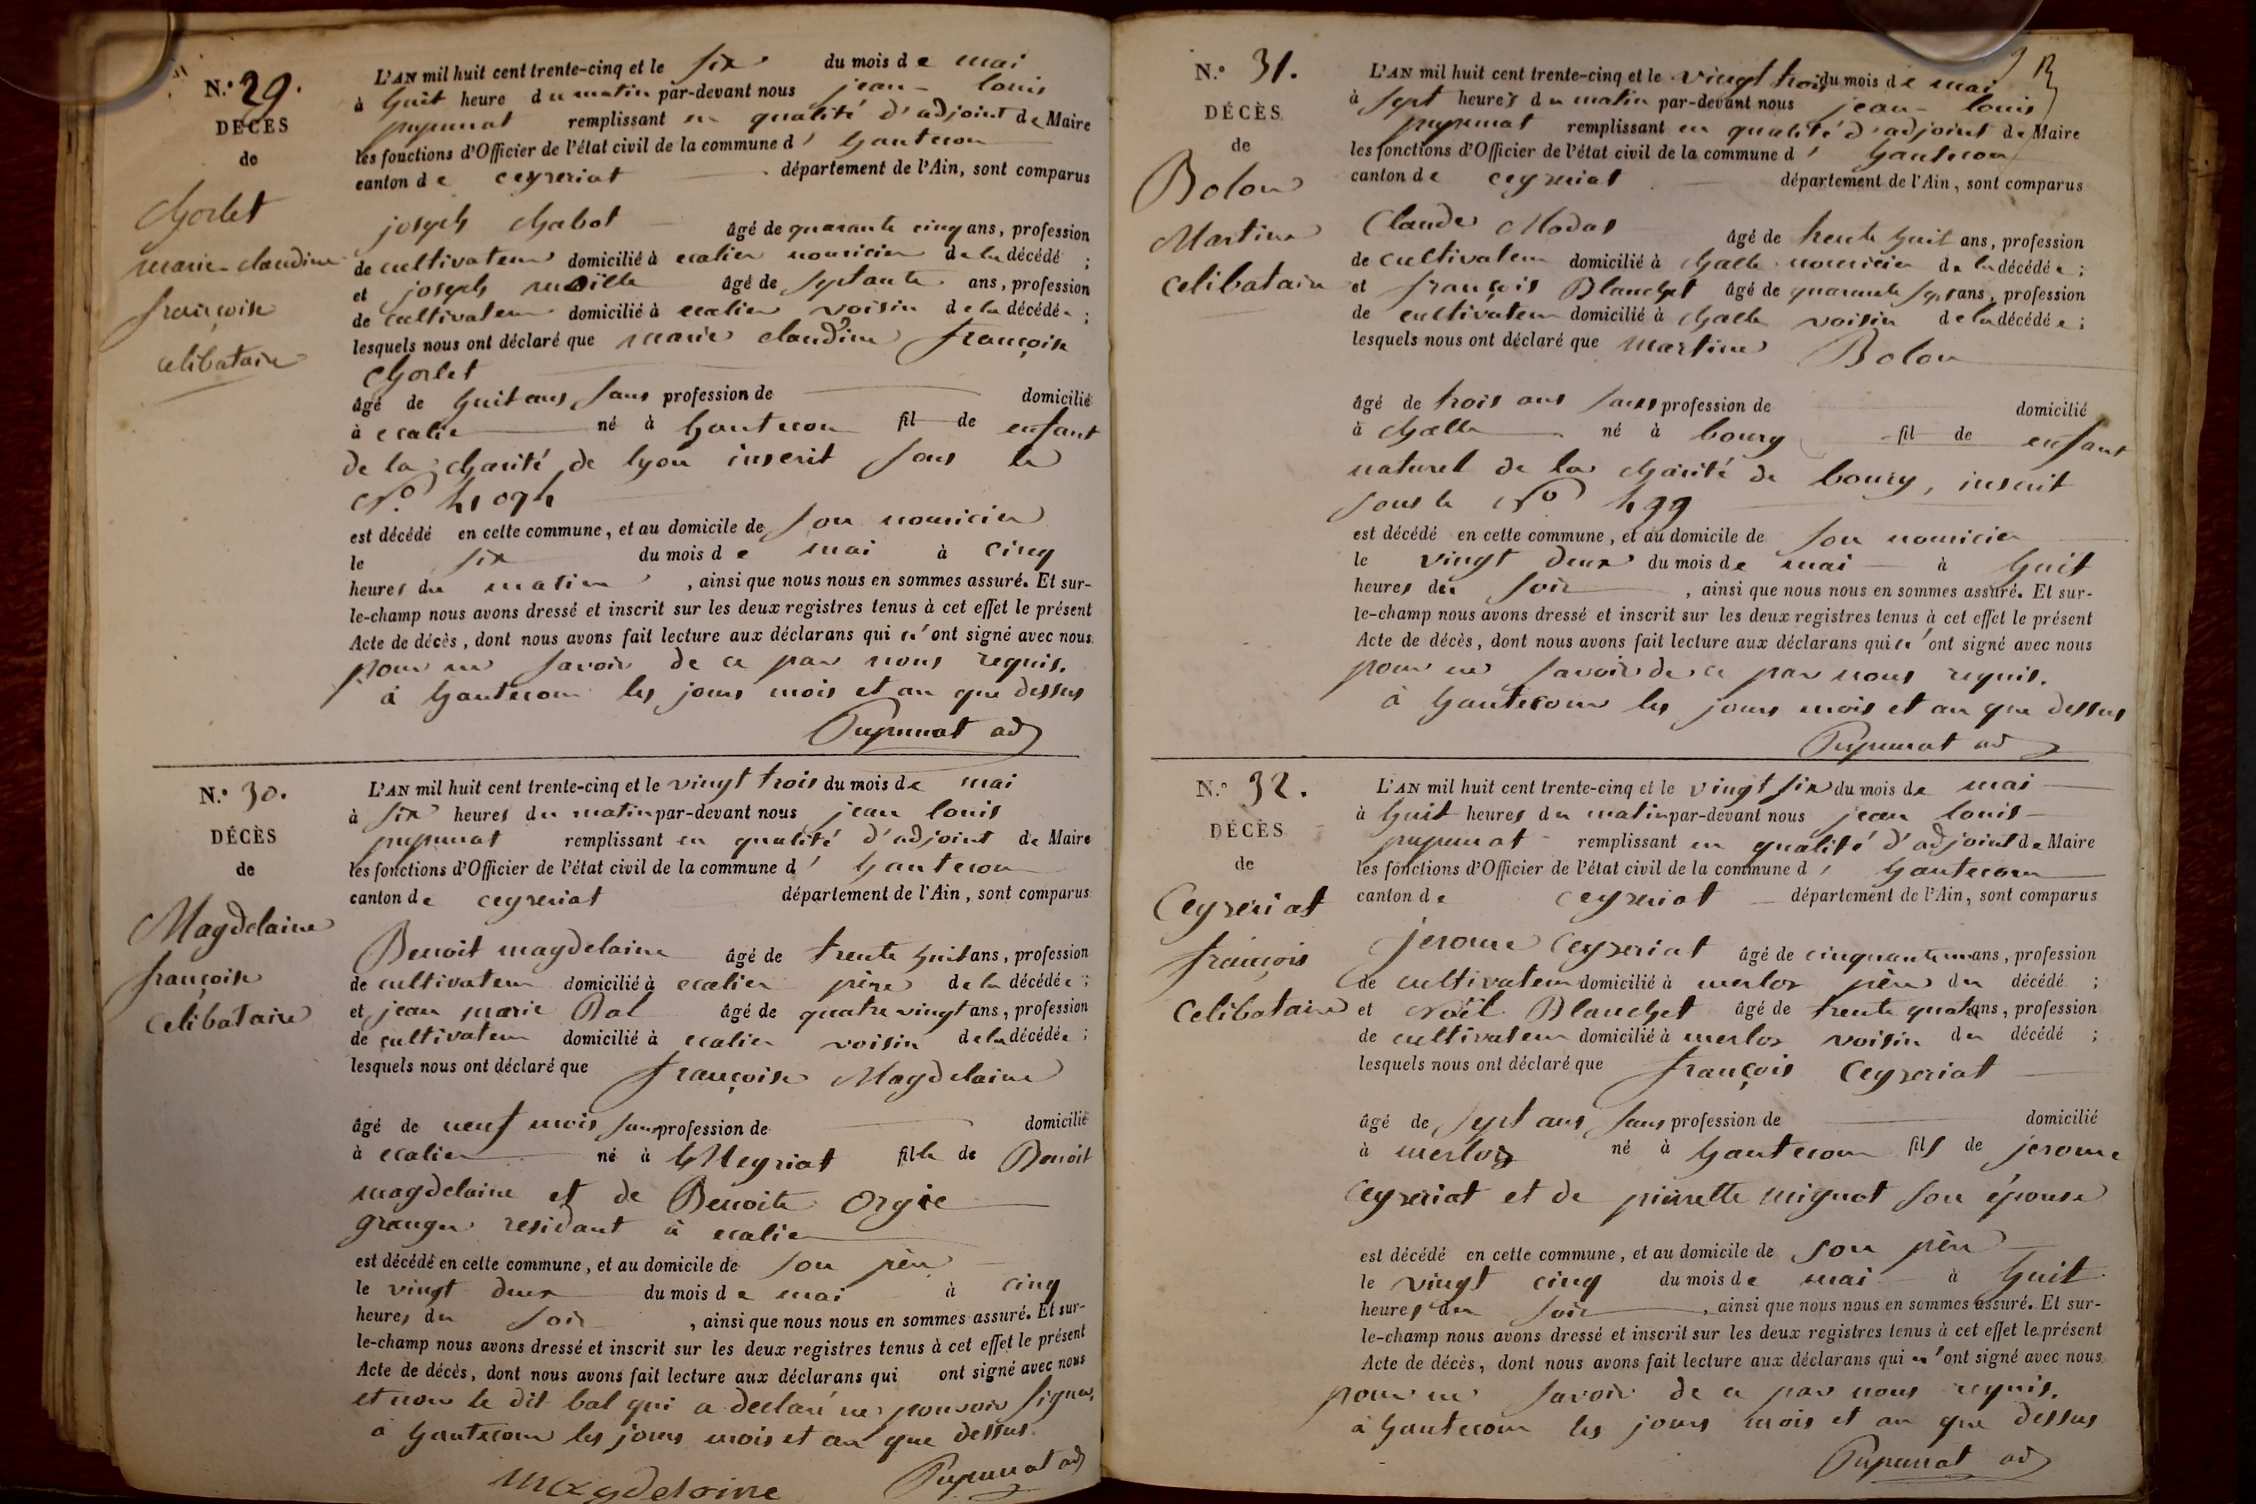 N.º 29.
DÉCÈS
de
Chorlet
marie claudine
françoise
celibataire
L'AN mil huit cent trente-cinq et le six du mois de mai
à huit heure du matin par-devant nous jean louis
pupunat remplissant en qualité d'adjoint de Maire
les fonctions d'Officier de l'état civil de la commune d' hautecour
canton de ceyzeriat département de l'Ain, sont comparus
joseph chabot âgé de quarante cinq ans, profession
de cultivateur domicilié à ecalier nouricier de la décédé ;
et joseph âgé de septante ans, profession
de cultivateur domicilié à ecalier voisin de la décédée ;
lesquels nous ont déclaré que marie claudine françoise
chorlet
âgé de huit ans sans profession de domicilié
à ecalier né à hautecour fil de enfant
de la charité de lyon inscrit sous le
N.º
est décédé en cette commune, et au domicile de son nouricier
le six du mois de mai à cinq
heures du matin, ainsi que nous nous en sommes assuré. Et sur-
le-champ nous avons dressé et inscrit sur les deux registres tenus à cet effet le présent
Acte de décès, dont nous avons fait lecture aux déclarans qui n'ont signé avec nous
pour ne savoir de ce par nous requis.
à hautecour les jours mois et an que dessus
Pupunat adj
N.º 30.
DÉCÈS
de
Magdelaine
françoise
celibataire
L'AN mil huit cent trente-cinq et le vingt trois du mois de mai
à six heures du matin par-devant nous jean louis
pupunat remplissant en qualité d'adjoint de Maire
les fonctions d'Officier de l'état civil de la commune d' hautecour
canton de ceyzeriat département de l'Ain, sont comparus
Benoit magdelaine âgé de trente huit ans, profession
de cultivateur domicilié à ecalier père de la décédée ;
et jean marie Bal âgé de quatre vingt ans, profession
de cultivateur domicilié à ecalier voisin de la décédée ;
lesquels nous ont déclaré que françoise Magdelaine
âgé de neuf mois sans profession de domicilié
à ecalier né à fille de Benoit
magdelaine et de Benoite Orgie
granger residant à ecalier
est décédé en cette commune, et au domicile de son père
le vingt deux du mois de mai à cinq
heures du soir, ainsi que nous nous en sommes assuré. Et sur-
le-champ nous avons dressé et inscrit sur les deux registres tenus à cet effet le présent
Acte de décès, dont nous avons fait lecture aux déclarans qui ont signé avec nous
et non le dit bal qui a declaré ne pouvoir signer,
à hautecour les jours mois et an que dessus.
magdelaine Pupunat adj
N.º 31.
DÉCÈS
de
Bolon
Martine
celibataire
L'AN mil huit cent trente-cinq et le vingt trois du mois de mai
à sept heures du matin par-devant nous jean louis
pupunat remplissant en qualité d'adjoint de Maire
les fonctions d'Officier de l'état civil de la commune d' hautecour
canton de ceyzeriat département de l'Ain, sont comparus
Claude Modas âgé de trente huit ans, profession
de cultivateur domicilié à challe nouricier de la décédée ;
et françois Blanchet âgé de quarante sept ans, profession
de cultivateur domicilié à challe voisin de la décédée ;
lesquels nous ont déclaré que martine Bolon
âgé de trois ans sans profession de domicilié
à challe né à bourg fil de enfant
naturel de la charité de bourg, inscrit
sous le N.º 499
est décédé en cette commune, et au domicile de son nouricier
le vingt deux du mois de mai à huit
heures du soir, ainsi que nous nous en sommes assuré. Et sur-
le-champ nous avons dressé et inscrit sur les deux registres tenus à cet effet le présent
Acte de décès, dont nous avons fait lecture aux déclarans qui n'ont signé avec nous
pour ne savoir de ce par nous requis.
à hautecour les jours mois et an que dessus
Pupunat adj
N.º 32.
DÉCÈS
de
Ceyzeriat
françois
celibataire
L'AN mil huit cent trente-cinq et le vingt six du mois de mai
à huit heures du matin par-devant nous jean louis
pupunat remplissant en qualité d'adjoint de Maire
les fonctions d'Officier de l'état civil de la commune d' hautecour
canton de ceyzeriat département de l'Ain, sont comparus
jerome Ceyzeriat âgé de cinquante un ans, profession
de cultivateur domicilié à merloz père du décédé ;
et Noël Blanchet âgé de trente quatre ans, profession
de cultivateur domicilié à merloz voisin du décédé ;
lesquels nous ont déclaré que françois Ceyzeriat
âgé de sept ans sans profession de domicilié
à merloz né à hautecour fils de jerome
Ceyzeriat et de pierrette mignot son épouse
est décédé en cette commune, et au domicile de son père
le vingt cinq du mois de mai à huit
heures du soir, ainsi que nous nous en sommes assuré. Et sur-
le-champ nous avons dressé et inscrit sur les deux registres tenus à cet effet le présent
Acte de décès, dont nous avons fait lecture aux déclarans qui n'ont signé avec nous
pour ne savoir de ce par nous requis.
à hautecour les jours mois et an que dessus
Pupunat adj